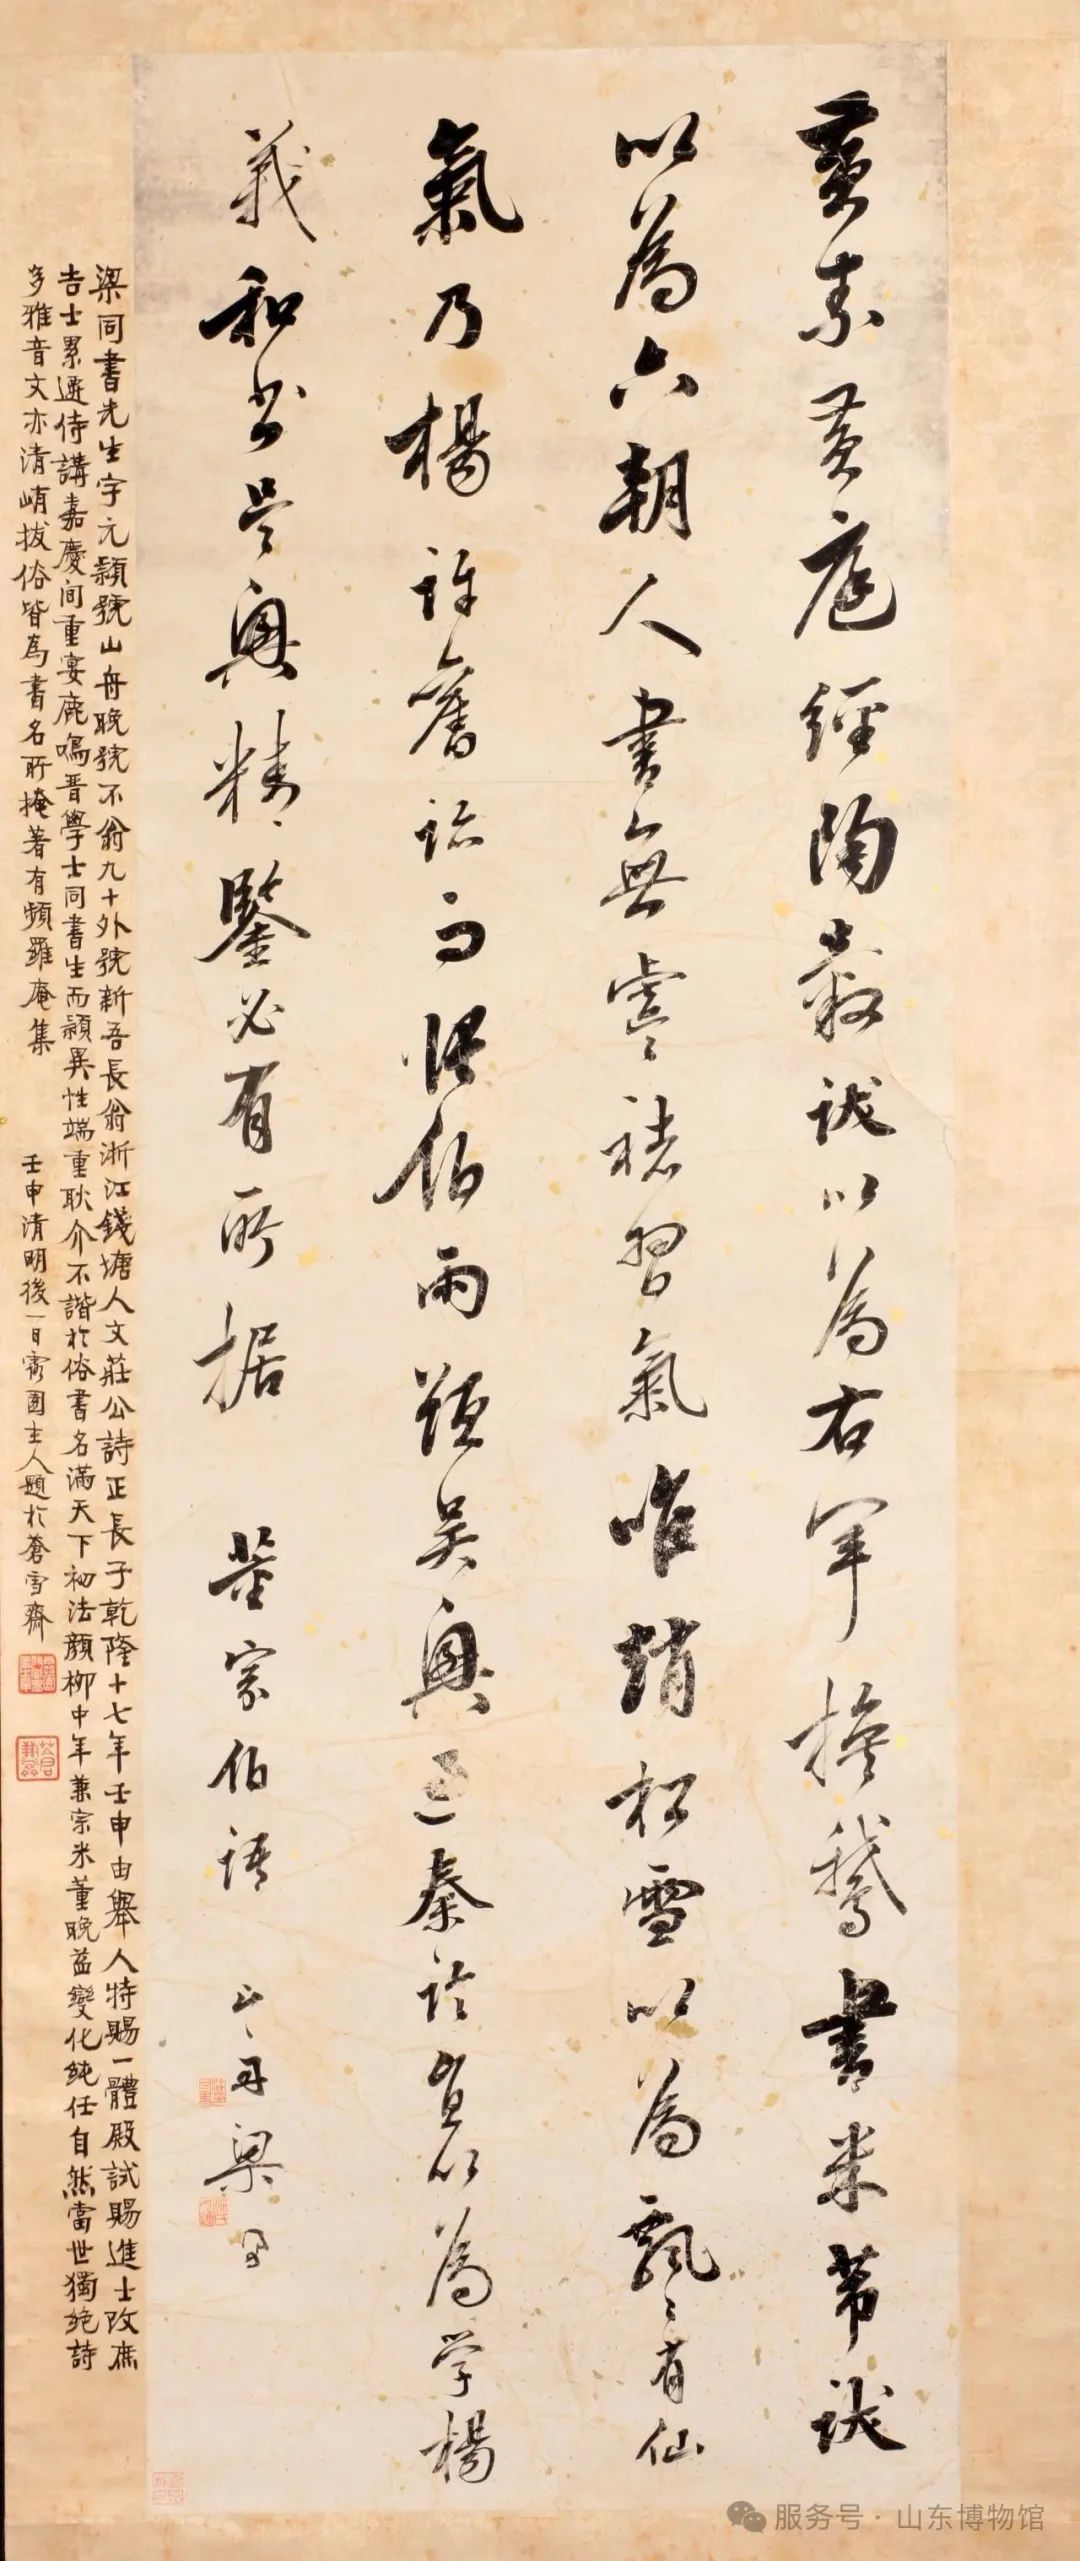 黄素黄庭經陶穀跋以為右軍換鵞書米芾跋
以為六朝人書無虞褚習氣唯趙松雪以為飄飄有仙
氣乃楊許舊迹而張伯雨題吴興過秦論直以為学楊
羲和書吴興精鑒必有所据 董宗伯語 山舟梁同
梁同書先生字元穎號山舟晚號不翁九十外號新吾長翁浙江錢塘人文莊公詩正長子乾隆十七年壬申由舉人特賜一體殿試賜進士改庶
吉士累遷侍講嘉慶间重宴鹿鳴晋學士同書生而穎異性端重耿介不諧於俗書名滿天下初法顔柳中年兼宗米董晚益變化純任自然當世獨絶詩
多雅音文亦清峭拔俗皆為書名所掩著有頻羅庵集 壬申清明後一日 園主人題於蒼雪齋
服务号·山东博物馆